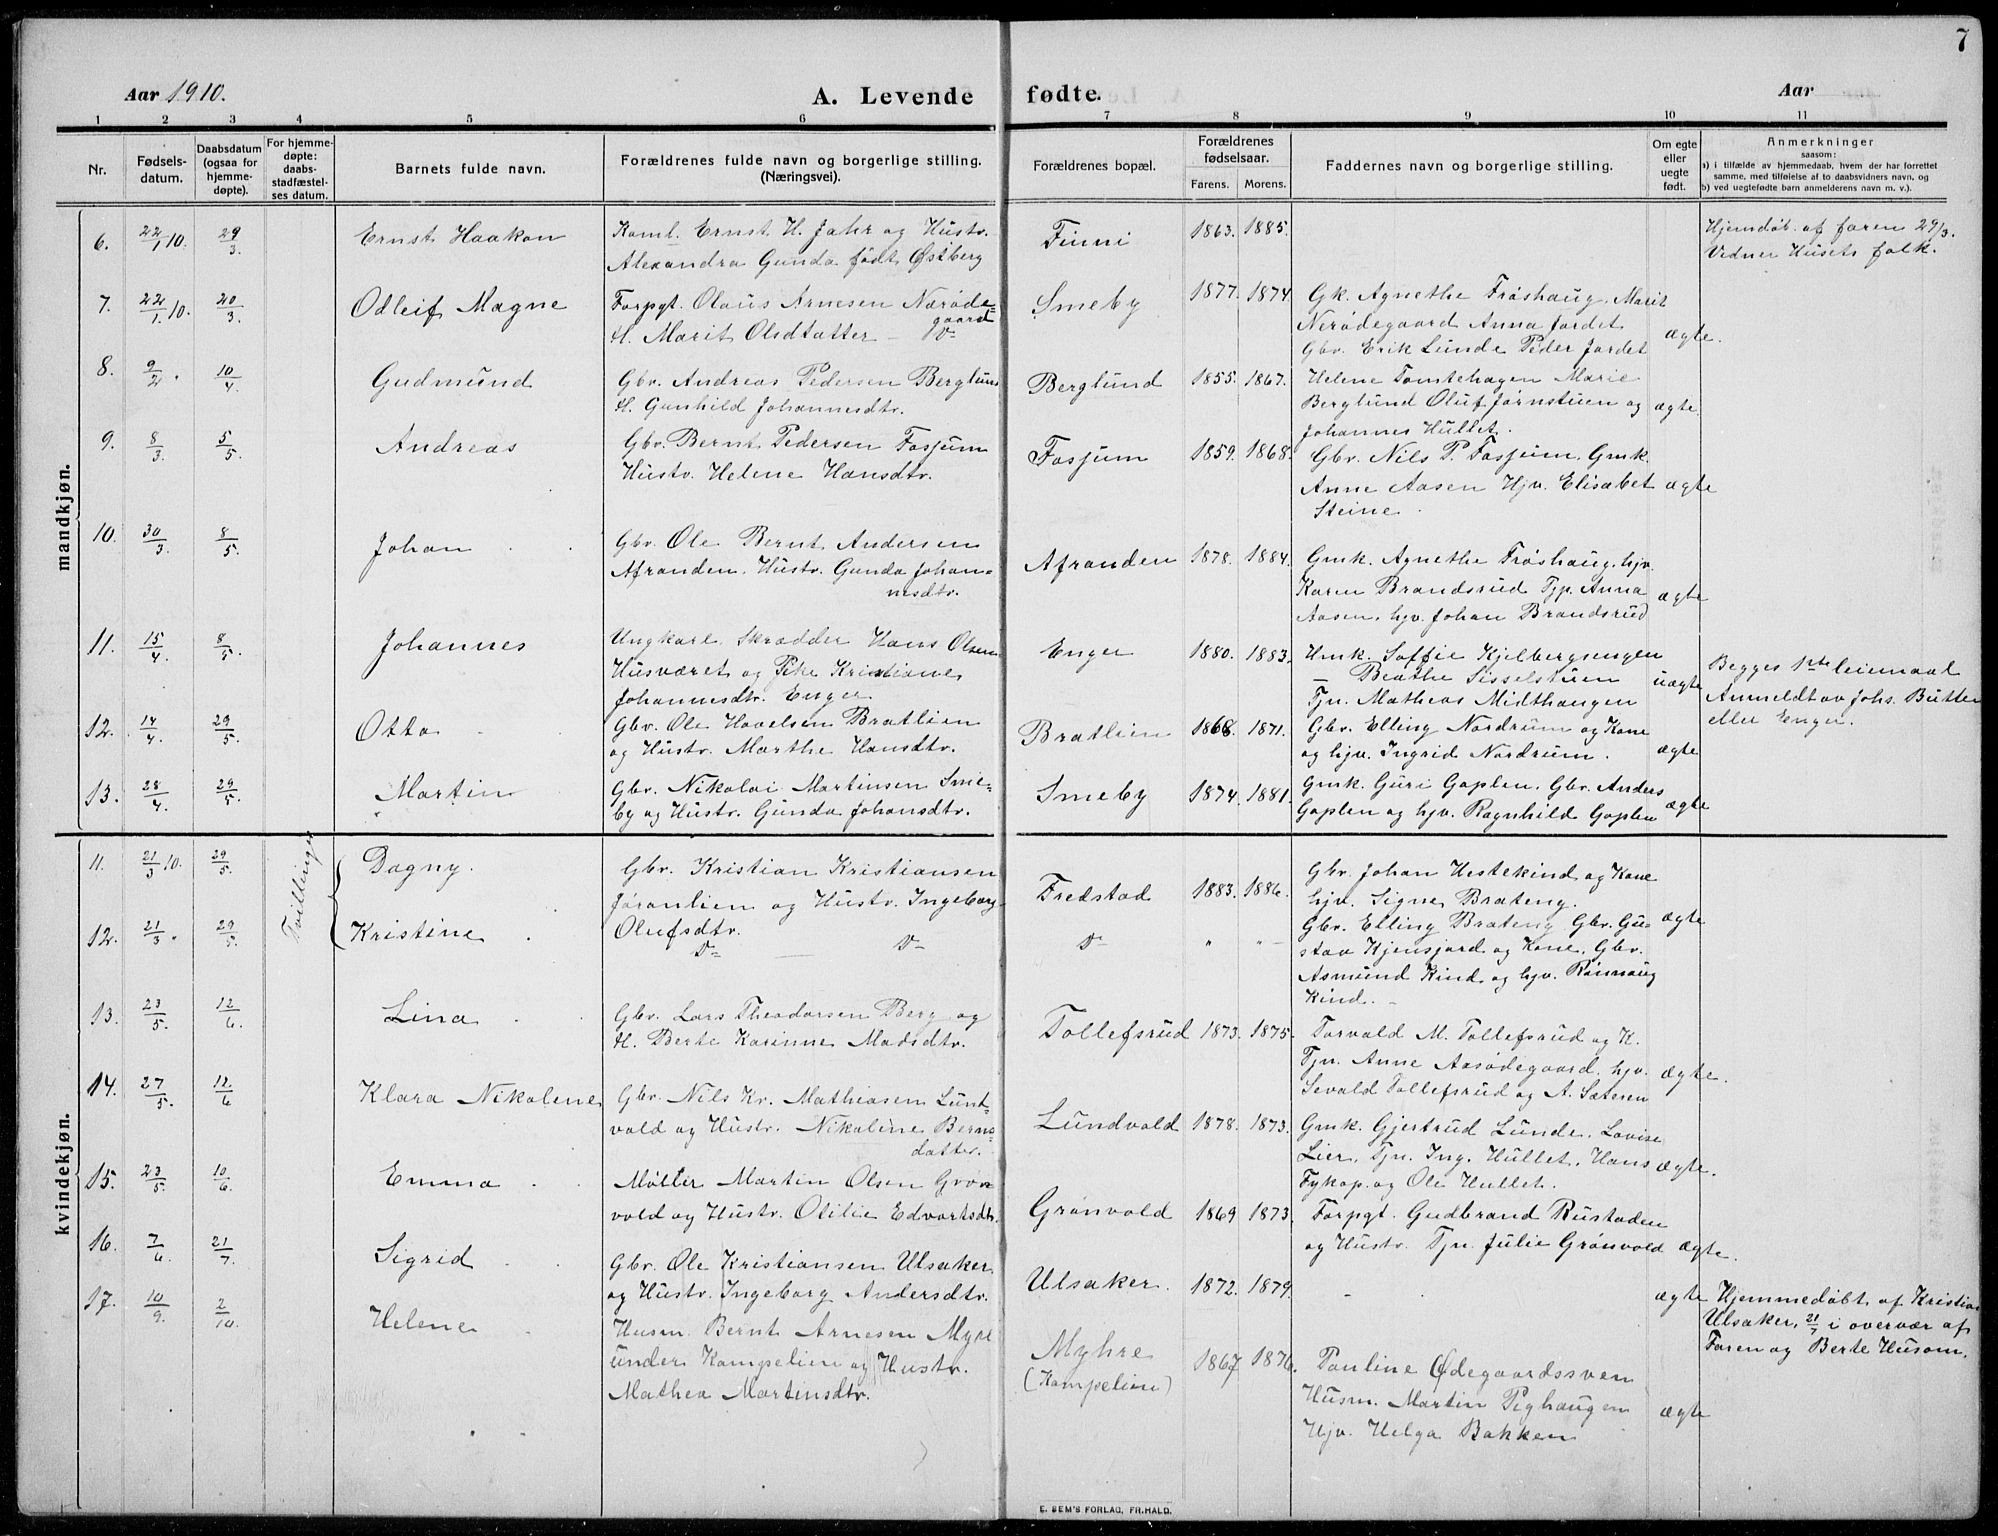 7
Aar 1910.
A. Levende fødte.
Aar
1 2 3 4 5 6 7 8 9 10 11
Nr.
Fødsels-
datum.
Daabsdatum
(ogsaa for
hjemme-
døpte).
For hjemme-
døpte:
daabs-
stadfæstel-
ses datum.
Barnets fulde navn.
Forældrenes fulde navn og borgerlige stilling.
(Næringsvei).
Forældrenes bopæl.
Forældrenes
fødselsaar.
Farens. Morens.
Faddernes navn og borgerlige stilling.
Om egte
eller
uegte
født.
Anmerkninger
saasom:
a) i tilfælde av hjemmedaab, hvem der har forrettet
samme, med tilføielse af to daabsvidners navn, og
b) ved uegtefødte barn anmelderens navn m. v.).
mandkjøn.
6. 22/1 10. 29/3. Ernst Haakon
Kaml. Ernst H. Jahr og Hustr.
Alexandra Gunda født Østberg
Finni 1863. 1885.
Hjemdøb. af faren 29/3.
Vedner Husets folk.
7. 22/1. 10. 20/3. Odleif Magne
Forpgt. Olaus Arnesen Nerøde-
gaard
H. Marit Olsdtatter — D-
Smeby 1877. 1874.
Gk. Agnethe Frøshaug. Marit
Nerødegaard Anna Jordet
Gbr. Erik Lunde Peder Jordet
ægte.
8. 9/2. 10/4. Gudmund
Gbr. Andreas Pedersen Berglund
H. Gunhild Johannesdtr.
Berglund 1855. 1867.
Helene Tomtehagen Marie
Berglund Oluf Jørnstuen og
Johannes Hullet.
ægte.
9. 8/3. 5/5. Andreas
Gbr. Bernt Pedersen Fosjum
Hustr. Helene Hansdtr.
Fosjum 1859. 1868.
Gbr. Nils P. Fosjum. Gmk.
Anne Aasen Hjv. Elisabet
Steine.
ægte
10. 30/3. 8/5. Johan
Gbr. Ole Bernt Andersen
Afranden. Hustr. Gunda Johan-
nesdtr.
Afranden 1878. 1884.
Gmk. Agnethe Frøshaug. hjv.
Karen Brandsrud Tjp. Anna
Aasen, hjv. Johan Brandsrud
ægte
11. 15/4. 8/5. Johannes
Ungkarl Skrædder Hans Olsen
Husværet og Pike Kristiane
Johannesdtr. Enger
Enger 1880. 1883.
Hmk. Soffie Kjelbergsengen
— Beathe Sisselstuen
Tjn. Matheas Midthaugen
uægte
Begges 1ste leiemaal
Anmeldt av Johs. Butter
eller Enger.
12. 14/4. 29/5. Otto
Gbr. Ole Hovelsen Bratlien
og Hustr. Marthe Hansdtr.
Bratlien 1868. 1871.
Gbr. Elling Nordrum og Kone
og hjv. Ingrid Nordrum.
ægte
13. 28/4. 29/5. Martin
Gbr. Nikolai Martinsen Sme-
by og Hustr. Gunda Johansdtr.
Smeby 1874. 1881.
Gmk. Guri Goplen. Gbr. Anders
Goplen og hjv. Ragnhild Goplen
ægte
kvindekjøn.
Tvillinger
11. 21/3 10. 29/5. Dagny.
Gbr. Kristian Kristiansen
Jøranlien og Hustr. Ingeborg
Olufsdtr.
Fredstad 1883. 1886.
Gbr. Johan Hestekind og Kone
hjv. Signe Brateng.
ægte
12. 21/3. 29/5. Kristine
D- D-
D- " "-
Gbr. Elling Brateng Gbr. Gu-
stav Kjensjord og Kone. Gbr.
Asmund Kind og hjv. Rønnaug
Kind. -
13. 23/5. 12/6. Lina
Gbr. Lars Theodorsen Berg og
H. Berte Karinne Madsdtr.
Tollefsrud 1873. 1875.
Torvald M. Tollefsrud og K.
Tjn. Anne Aasødegaard. hjv.
Sevald Tollefsrud og A. Sæteren
ægte.
14. 27/5. 12/6 Klara Nikolene
Gbr. Nils Kr. Mathiasen Lund-
vold og Hustr. Nikoline Bernts-
datter.
Lundvold 1878. 1873.
Gmk. Gjertrud Lunde. Lovise
Lier. Tjn. Ing. Hullet. Hans
Fykop. og Ole Hullet.
ægte.
15. 23/5. 10/6. Emma
Møller Martin Olsen Grøn-
vold og Hustr. Otilie Edvartsdtr.
Grønvold 1869 1873.
Forpgt. Gudbrand Rustaden
og Hustr. Tjn. Julie Grønvold
ægte.
16. 7/6. 21/7. Sigrid
Gbr. Ole Kristiansen Ulsaker
og Hustr. Ingeborg Andersdtr.
Ulsaker. 1872. 1879.
-
ægte
Hjemmedøbt af Kristian
Ulsaker, 21/7 i overvær af
Faren og Berte Husom.
17. 10/9. 2/10. Helene
Husm. Bernt Arnesen Myre
under Kampelien og Hustr.
Mathea Martinsdtr.
Myhre
(Kampelien)
1867 1876.
Pauline Ødegaardssven
Husm. Martin Pighaugen
Hjv. Helga Bakken
ægte
E. SEM'S FORLAG, FR.HALD.